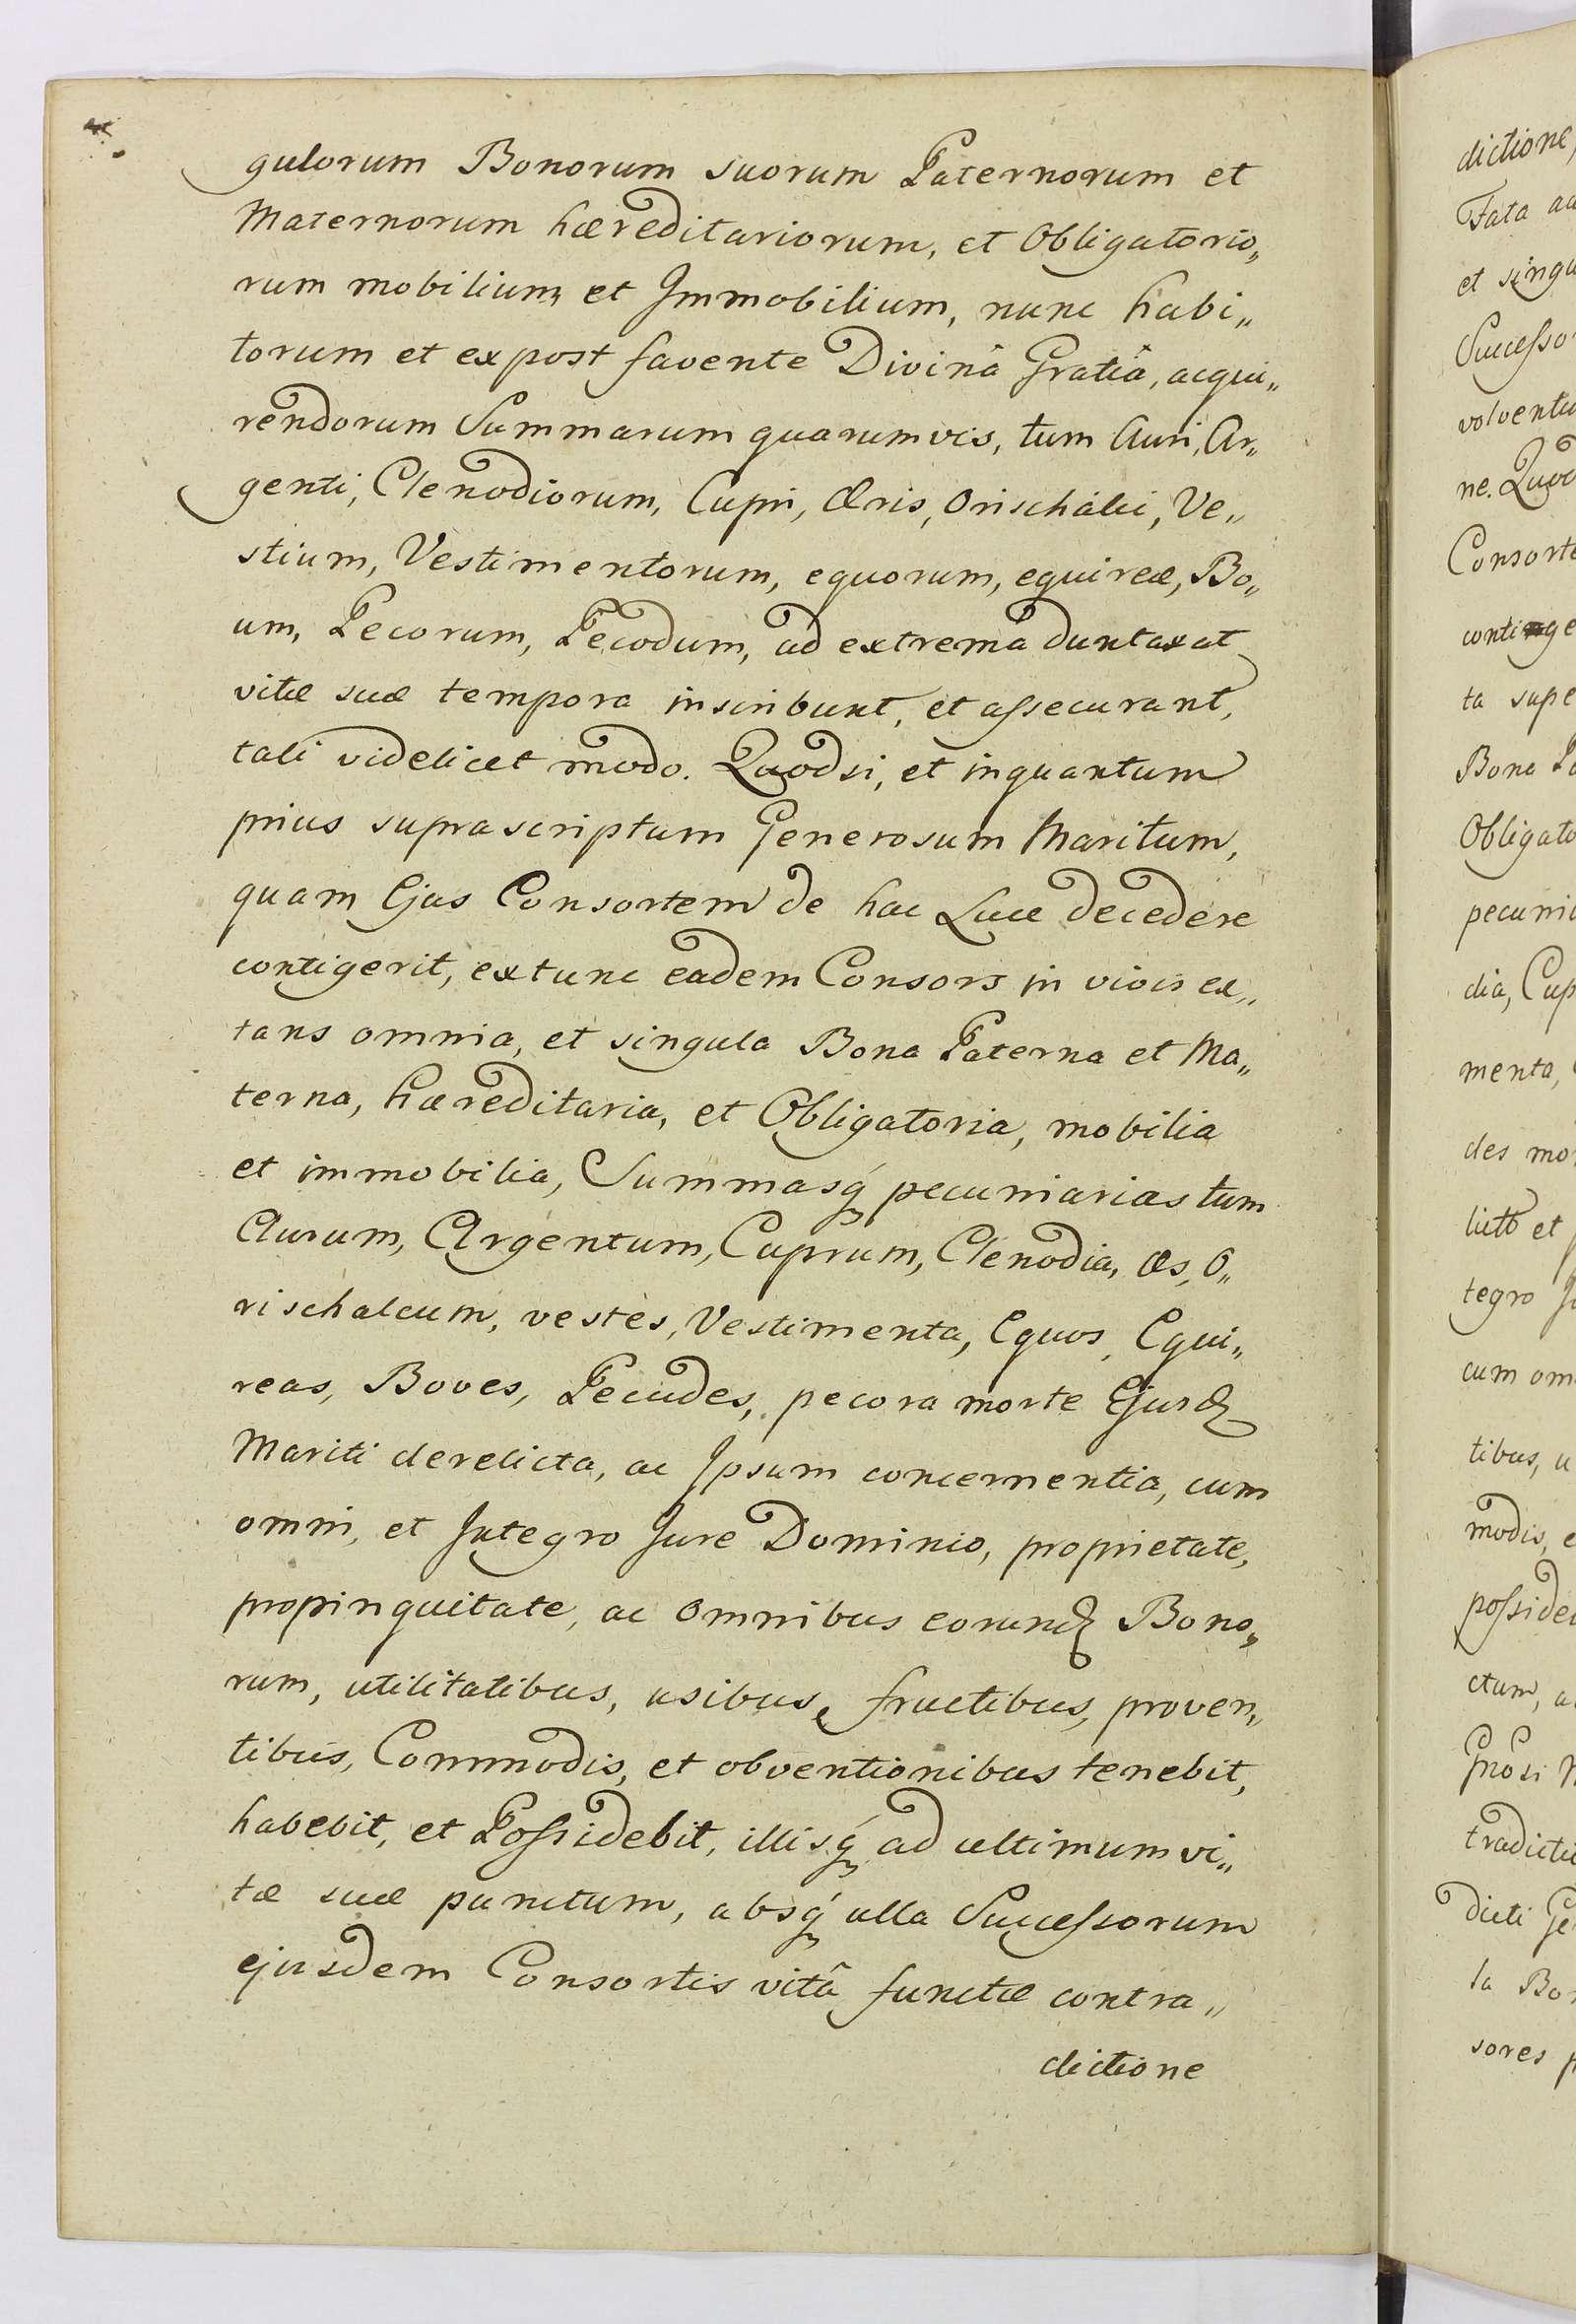 gulorum Bonorum suorum Paternorum et
Maternorum hæreditariorum, et Obligatorio„
rum mobilium et Immobilium, nunc habi„
torum et expost favente Divinâ Gratiâ, acqui„
rendorum Summarum quarumvis, tum Auri, Ar„
genti, Clenodiorum, Cupri, Æris, Orischalci, Ve„
stium, Vestimentorum, equorum, equireæ, Bo„
um, Pecorum, Pecodum, ad extrema duntaxat
vitæ suæ tempora inscribunt, et assecurant,
tali videlicet modo. Quodsi, et inquantum
prius suprascriptum Generosum Maritum,
quam Ejus Consortem de hac Luce decedere
contigerit, extunc eadem Consors in vivis ex„
tans omnia, et singula Bona Paterna et Ma„
terna, hæreditaria, et Obligatoria, mobilia
et immobilia, Summasq́ pecuniarias tum
Aurum, Argentum, Cuprum, Clenodia, Æs, O„
rischalcum, vestes, Vestimenta, Equos, Equi„
reas, Boves, Pecudes, pecora morte Ejusd
Mariti derelicta, ac Ipsum concernentia, cum
omni, et Integro Jure Dominio, proprietate,
propinquitate, ac omnibus eorund Bono„
rum, utilitatibus, usibus, fructibus, proven„
tibus, Commodis, et obventionibus tenebit,
habebit, et Possidebit, illisq́ ad ultimum vi„
tæ suæ punctum, absq́ ulla Successorum
ejusdem Consortis vitâ functæ contra„
dictione
dictione,
Fata
et singu
Successo
volventu
ne. Quod
Consorte
continge
ta supe
Bona
Obligato
pecuni
dia, Cup
menta,
des mo
et
tegro
cum om
tibus, u
modis, e
posside
ctum, a
tradicti
dicti Ge
la Bo
sores p